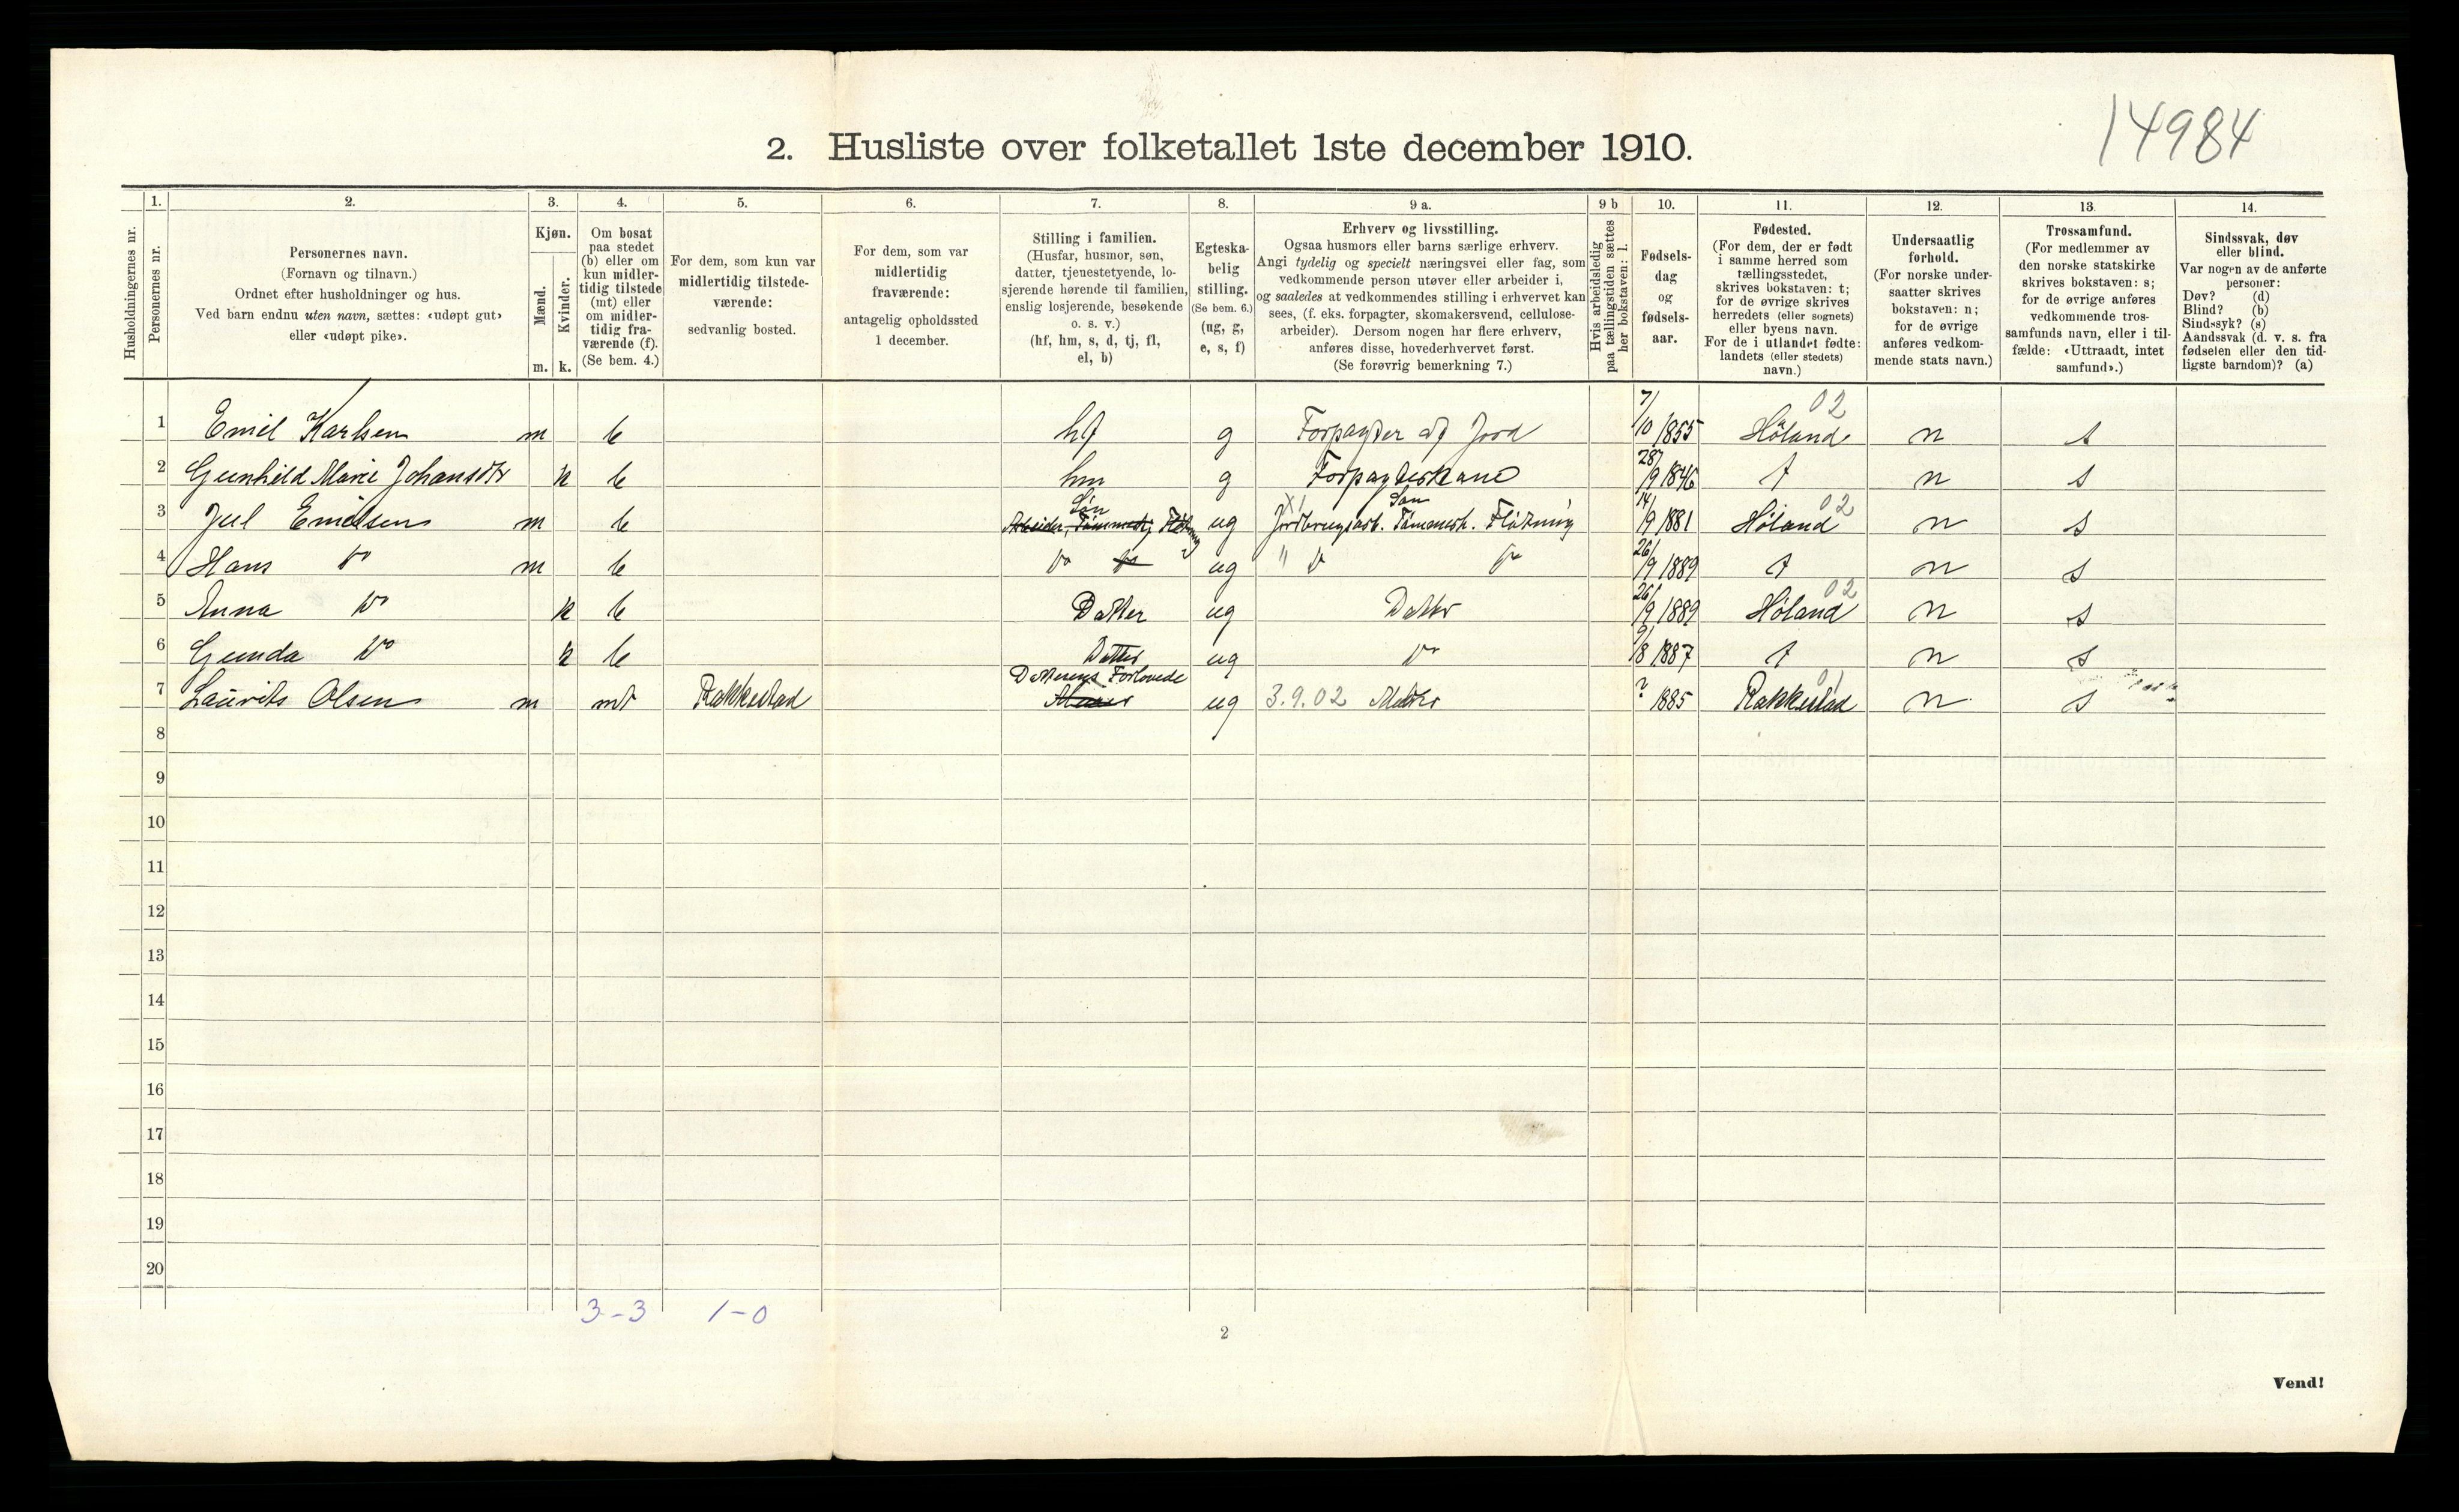 14984
2. Husliste over folketallet 1ste december 1910.
Husholdningernes nr.
1.
Personernes nr.
2.
Personernes navn.
(Fornavn og tilnavn.)
Ordnet efter husholdninger og hus.
Ved barn endnu uten navn, sættes: «udøpt gut»
eller «udøpt pike».
3.
Kjøn.
Mænd.
Kvinder.
m. k.
4.
Om bosat
paa stedet
(b) eller om
kun midler-
tidig tilstede
(mt) eller
om midler-
tidig fra-
værende (f).
(Se bem. 4.)
5.
For dem, som kun var
midlertidig tilstede-
værende:
sedvanlig bosted.
6.
For dem, som var
midlertidig
fraværende:
antagelig opholdssted
1 december.
7.
Stilling i familien.
(Husfar, husmor, søn,
datter, tjenestetyende, lo-
sjerende hørende til familien,
enslig losjerende, besøkende
o. s. v.)
(hf, hm, s, d, tj, fl,
el, b)
8.
Egteska-
belig
stilling.
(Se bem. 6.)
(ug, g,
e, s, f)
9 a.
Erhverv og livsstilling.
Ogsaa husmors eller barns særlige erhverv.
Angi tydelig og specielt næringsvei eller fag, som
vedkommende person utøver eller arbeider i,
og saaledes at vedkommendes stilling i erhvervet kan
sees, (f. eks. forpagter, skomakersvend, cellulose-
arbeider). Dersom nogen har flere erhverv,
anføres disse, hovederhvervet først.
(Se forøvrig bemerkning 7.)
9 b
Hvis arbeidsledig
paa tællingstiden sættes
her bokstaven: l.
10.
Fødsels-
dag
og
fødsels-
aar.
11.
Fødested.
(For dem, der er født
i samme herred som
tællingsstedet,
skrives bokstaven: t;
for de øvrige skrives
herredets (eller sognets)
eller byens navn.
For de i utlandet fødte:
landets (eller stedets)
navn.)
12.
Undersaatlig
forhold.
(For norske under-
saatter skrives
bokstaven: n;
for de øvrige
anføres vedkom-
mende stats navn.)
13.
Trossamfund.
(For medlemmer av
den norske statskirke
skrives bokstaven: s;
for de øvrige anføres
vedkommende tros-
samfunds navn, eller i til-
fælde: «Uttraadt, intet
samfund».)
14.
Sindssvak, døv
eller blind.
Var nogen av de anførte
personer:
Døv? (d)
Blind? (b)
Sindssyk? (s)
Aandssvak (d. v. s. fra
fødselen eller den tid-
ligste barndom)? (a)
1 Emil Karlsen m b hf g Forpagter af Jord 7/10 1855 Høland 02 n s
2 Gunhild Marie Johansdtr k b hm g Forpagterkane 28/9 1846 t n s
3 Jul Emilsen m b Søn Arbeider, Tømmerh, Fløtning ug Jordbrugsarb. Tømmerh. Fløtning Søn 14/9 1881 Høland 02 n s
4 Hans Do m b Do Do ug " Do Do 26/9 1889 t n s
5 Anna Do k b Datter ug Datter 26/9 1889 Høland 02 n s
6 Gunda Do k b Datter ug Do 9/8 1887 t n s
7 Laurits Olsen m mt Rakkestad Datterens Forlovede ug 3.9.02 ? 1885 Rakkestad 01 n s
8
9
10
11
12
13
14
15
16
17
18
19
20
3-3 1-0
2
Vend!